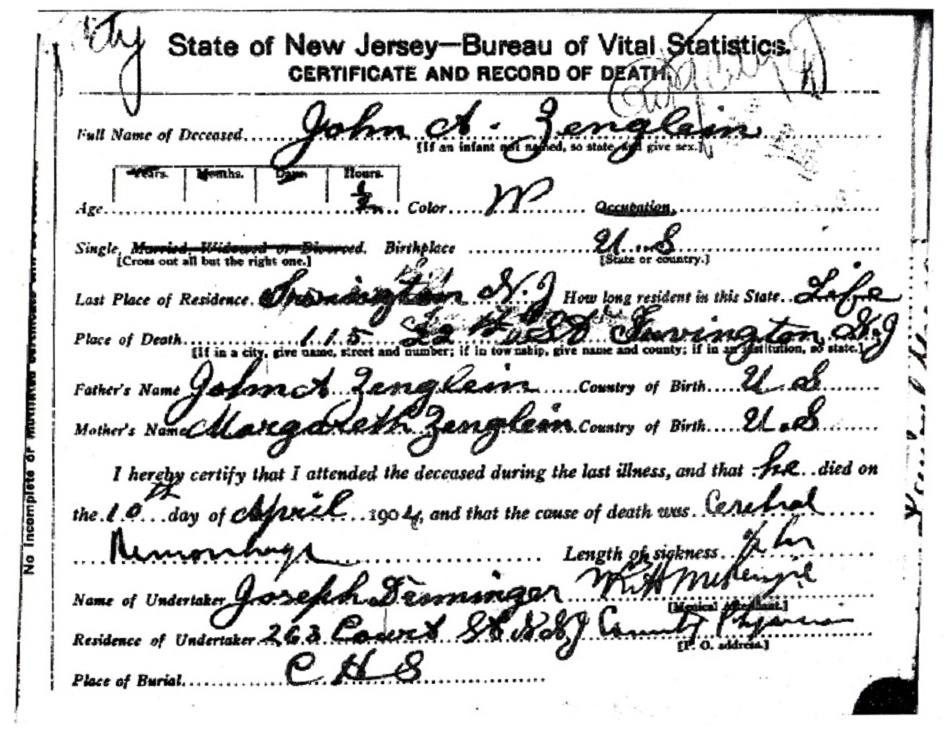 City
State of New Jersey—Bureau of Vital Statistics.
CERTIFICATE AND RECORD OF DEATH.
Full Name of Deceased John A. Zenglein
[If an infant not named, so state, and give sex.]
Years. Months. Days. Hours.
Age ½ Color W Occupation
Single, Married, Widowed or Divorced. Birthplace U.S
[Cross out all but the right one.] [State or country.]
Last Place of Residence. Irvington N.J How long resident in this State. Life
Place of Death 115 22nd St Irvington, N.J
[If in a city, give name, street and number; if in township, give name and county; if in an institution, so state.]
Father's Name John A Zenglein Country of Birth U.S
Mother's Name Margareth Zenglein Country of Birth U.S
I hereby certify that I attended the deceased during the last illness, and that he died on
the 10th day of April 1904, and that the cause of death was Cerebral
Hemorrhage Length of sickness ½ hr
Name of Undertaker Joseph Denninger W H McKenzie
[Medical Attendant.]
Residence of Undertaker 263 Court St N. N.J County Physician
[P. O. address.]
Place of Burial C H S